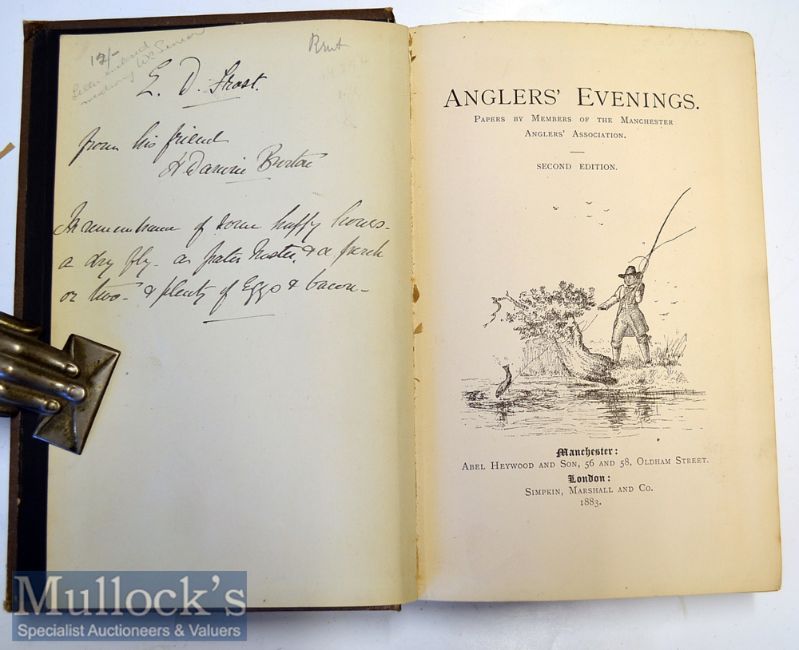 12/-
E. D. Frost.
from his friend
Burton
In remembrance of some happy hours -
a dry fly - a pater noster & a perch
or two - & plenty of Eggs & bacon -
ANGLERS' EVENINGS.
PAPERS BY MEMBERS OF THE MANCHESTER
ANGLERS' ASSOCIATION.
SECOND EDITION.
Manchester:
ABEL HEYWOOD AND SON, 56 AND 58, OLDHAM STREET.
London:
SIMPKIN, MARSHALL AND CO.
1883.
MULLOCK'S
Specialist Auctioneers & Valuers